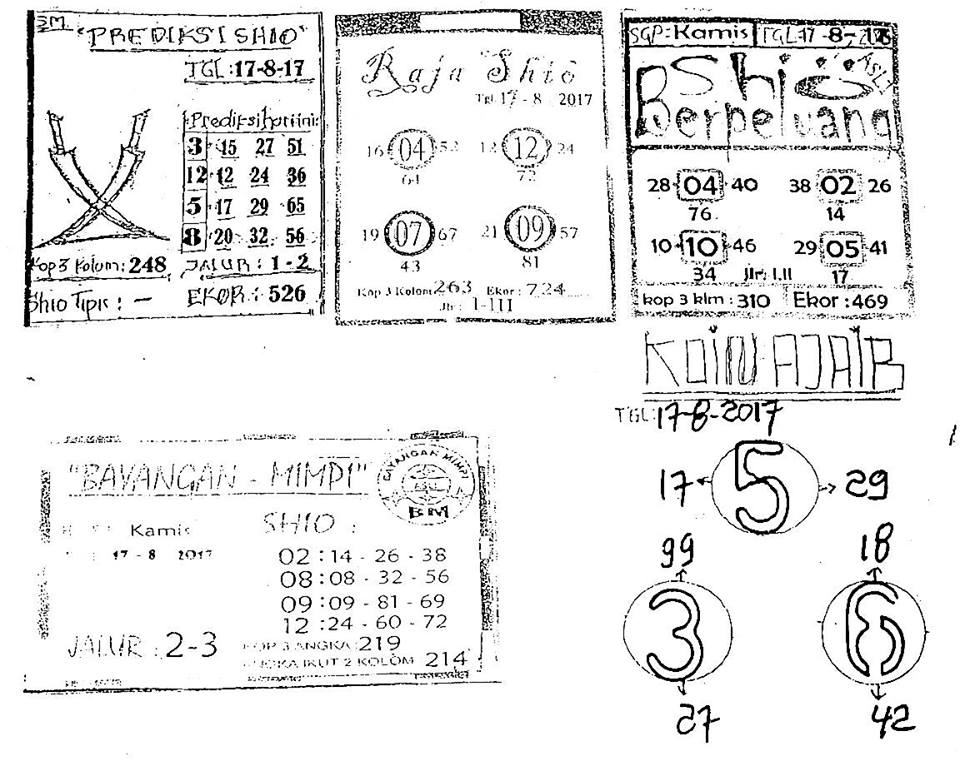 SM.
"PREDIKSI SHIO"
TGL:17-8-17
Prediksi hari ini:
3 15 27 51
12 12 24 36
5 17 29 65
8 20 32 56
Kop 3 Kolum: 248
JALUR : 1-2
Shio Tipis : -
EKOR : 526
Raja Shio
Tgl 17 - 8 2017
16 04 52
64
12 12 24
72
19 07 67
43
21 09 57
81
Kop 3 Kolom 263 Ekor : 724
Jlr : I-III
SGP: Kamis TGL 17-8-
Shio
ASLI
Berpeluang
28 04 40
76
38 02 26
14
10 10 46
34
29 05 41
17
Jlr: I.II
kop 3 klm : 310
Ekor : 469
KOIN AJAIB
TGL:17-8-2017
17 5 29
99
3
27
18
6
42
"BAYANGAN - MIMPI"
BAYANGAN MIMPI
BM
Kamis
17 - 8 2017
SHIO :
02 : 14 - 26 - 38
08 : 08 - 32 - 56
09 : 09 - 81 - 69
12 : 24 - 60 - 72
JALUR : 2-3
KOP 3 ANGKA : 219
ANGKA IKUT 2 KOLOM 214